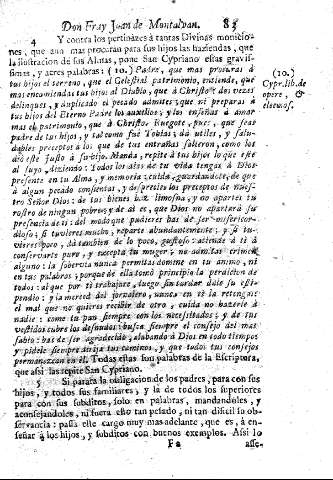 Don Fray Juan de Montalvan. 83
4 Y contra los pertinazes à tantas Divinas monicio-
nes, que aun mas procuran para sus hijos las haziendas, que
la ilustracion de sus Almas, pone San Cypriano estas gravis-
simas, y acres palabras: (10.) Padre, que mas procuras à
tus hijos el terreno, que el Celestial patrimonio, entiende, que
mas encomiendas tus hijos al Diablo, que à Christo: dos vezes
delinques, y duplicado el pecado admites; que ni preparas à
tus hijos del Eterno Padre los auxilios; y los enseñas à amar
mas el patrimonio, que à Christo. Ruegote, pues, que seas
padre de tus hijos, y tal como fue Tobias; dà utiles, y salu-
dables preceptos à los que de tus entrañas salieron, como los
diò este justo à su hijo. Manda, repite à tus hijos lo que este
al suyo, diziendo: Todos los dias de tu vida tengas à Dios
presente en tu Alma, y memoria; cuida, guardandote, de que
à algun pecado consientas, y desprecies los preceptos de nues-
tro Señor Dios: de tus bienes haz limosna, y no apartes tu
rostro de ningun pobre; y de aì es, que Dios no apartarà su
presencia de ti: del modo que pudieres has de ser misericor-
dioso; si tuvieres mucho, reparte abundantemente; y si tu-
vieres poco, dà tambien de lo poco, gustoso: atiende à ti à
conservarte puro, y excepta tu muger, no admitas crimen
alguno: la sobervia nunca permitas domine en tu animo, ni
en tus palabras; porque de ella tomò principio la perdicion de
todos: al que por ti trabajare, luego sin tardar dale su esti-
pendio; y la merced del jornalero, nunca en ti la retengas:
el mal que no quieres recibir de otro, cuida no hazerle à
nadie: come tu pan siempre con los necesitados; y de tus
vestidos cubre los desnudos: busca siempre el consejo del mas
sabio: has de ser agradecido, alabando à Dios en todo tiempo;
y pidele siempre dirija tus caminos, y que todos tus consejos
permanezcan en èl. Todas ellas son palabras de la Escriptura,
que assi las repite San Cypriano.
5 Si parara la obligacion de los padres, para con sus
hijos, y todos sus familiares, y la de todos los superiores
para con sus subditos, solo en palabras, mandandoles, y
aconsejandoles, ni fuera ello tan pesado, ni tan dificil su ob-
servancia: passa este cargo muy mas adelante, que es, à en-
señar à los hijos, y subditos con buenos exemplos. Assi lo
F2 asse-
(10.)
Cypr. lib. de
opere, &
eleemos.